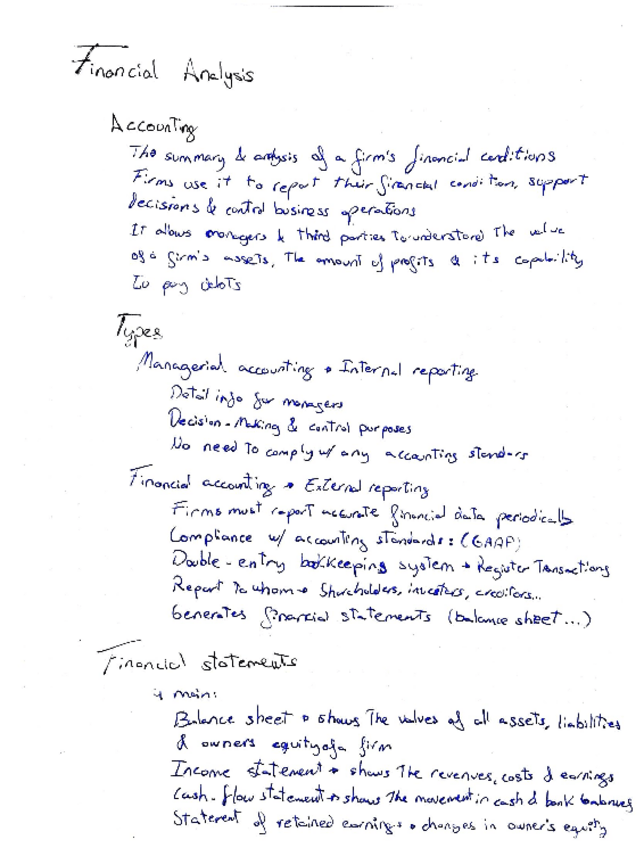 Financial Analysis
Accounting
The summary & analysis of a firm's financial conditions
Firms use it to report their financial condition, support
decisions & control business operations
It allows managers & third parties to understand The value
of a firm's assets, The amount of profits & its capability
to pay debts
Types
Managerial accounting → Internal reporting
Detail info for managers
Decision-Making & control purposes
No need to comply w/ any accounting standars
Financial accounting → External reporting
Firms must report accurate financial data periodically
Compliance w/ accounting standards: (GAAP)
Double-entry bookkeeping system → Register Transactions
Report to whom → Shareholders, investors, creditors...
Generates financial statements (balance sheet...)
Financial statements
4 main:
Balance sheet → shows The values of all assets, liabilities
& owners equity of a firm
Income statement → shows The revenues, costs & earnings
Cash-flow statement → shows The movement in cash & bank balances
Statement of retained earnings → changes in owner's equity